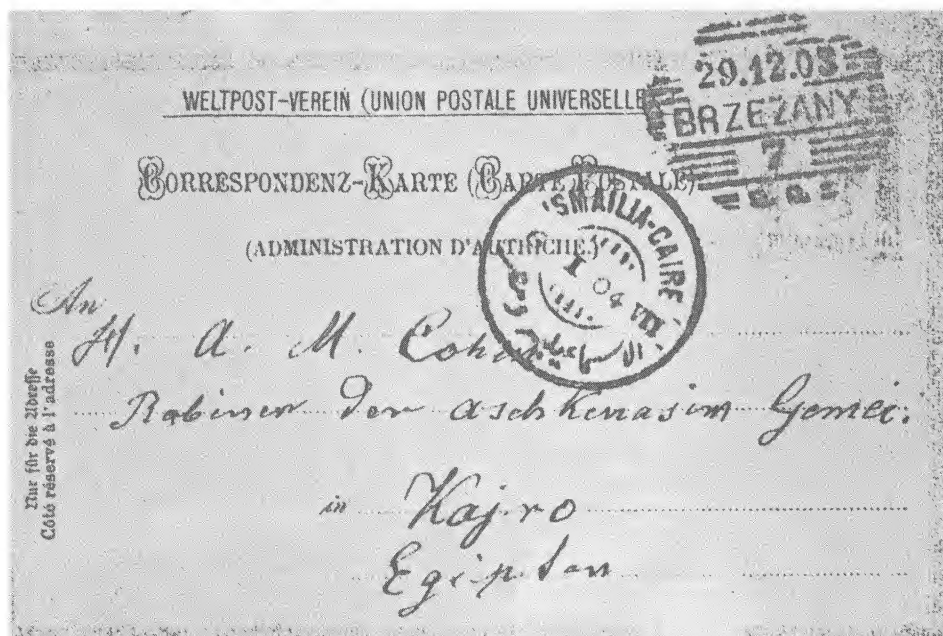 29.12.03
BRZEZANY
7
WELTPOST-VEREIN (UNION POSTALE UNIVERSELLE
CORRESPONDENZ-KARTE (CARTE POSTALE)
(ADMINISTRATION D'AUTRICHE.)
'SMAILIA-CAIRE
I 04 VII
An
H. A. M. Cohen
Rabiner der aschkenasim Gemei.
in Kajro
Egipten
Nur für die Adresse
Côté réservé à l'adresse